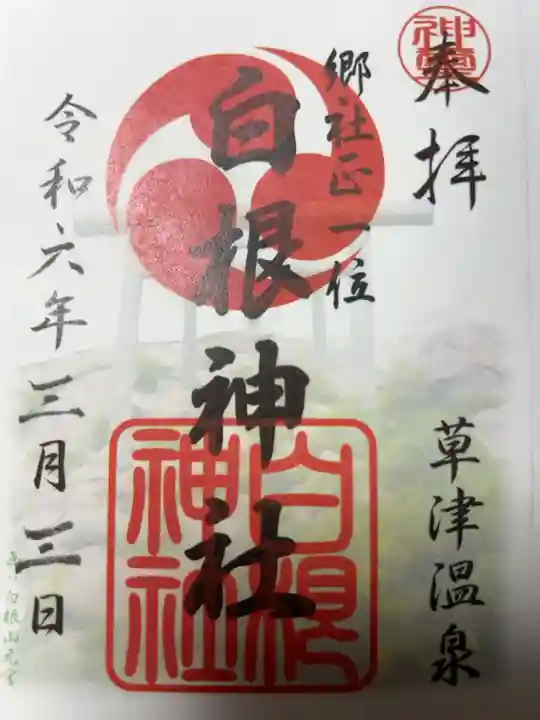 奉拝
草津温泉
郷社正一位
白根神社
白根神社
令和六年三月三日
白根山元宮